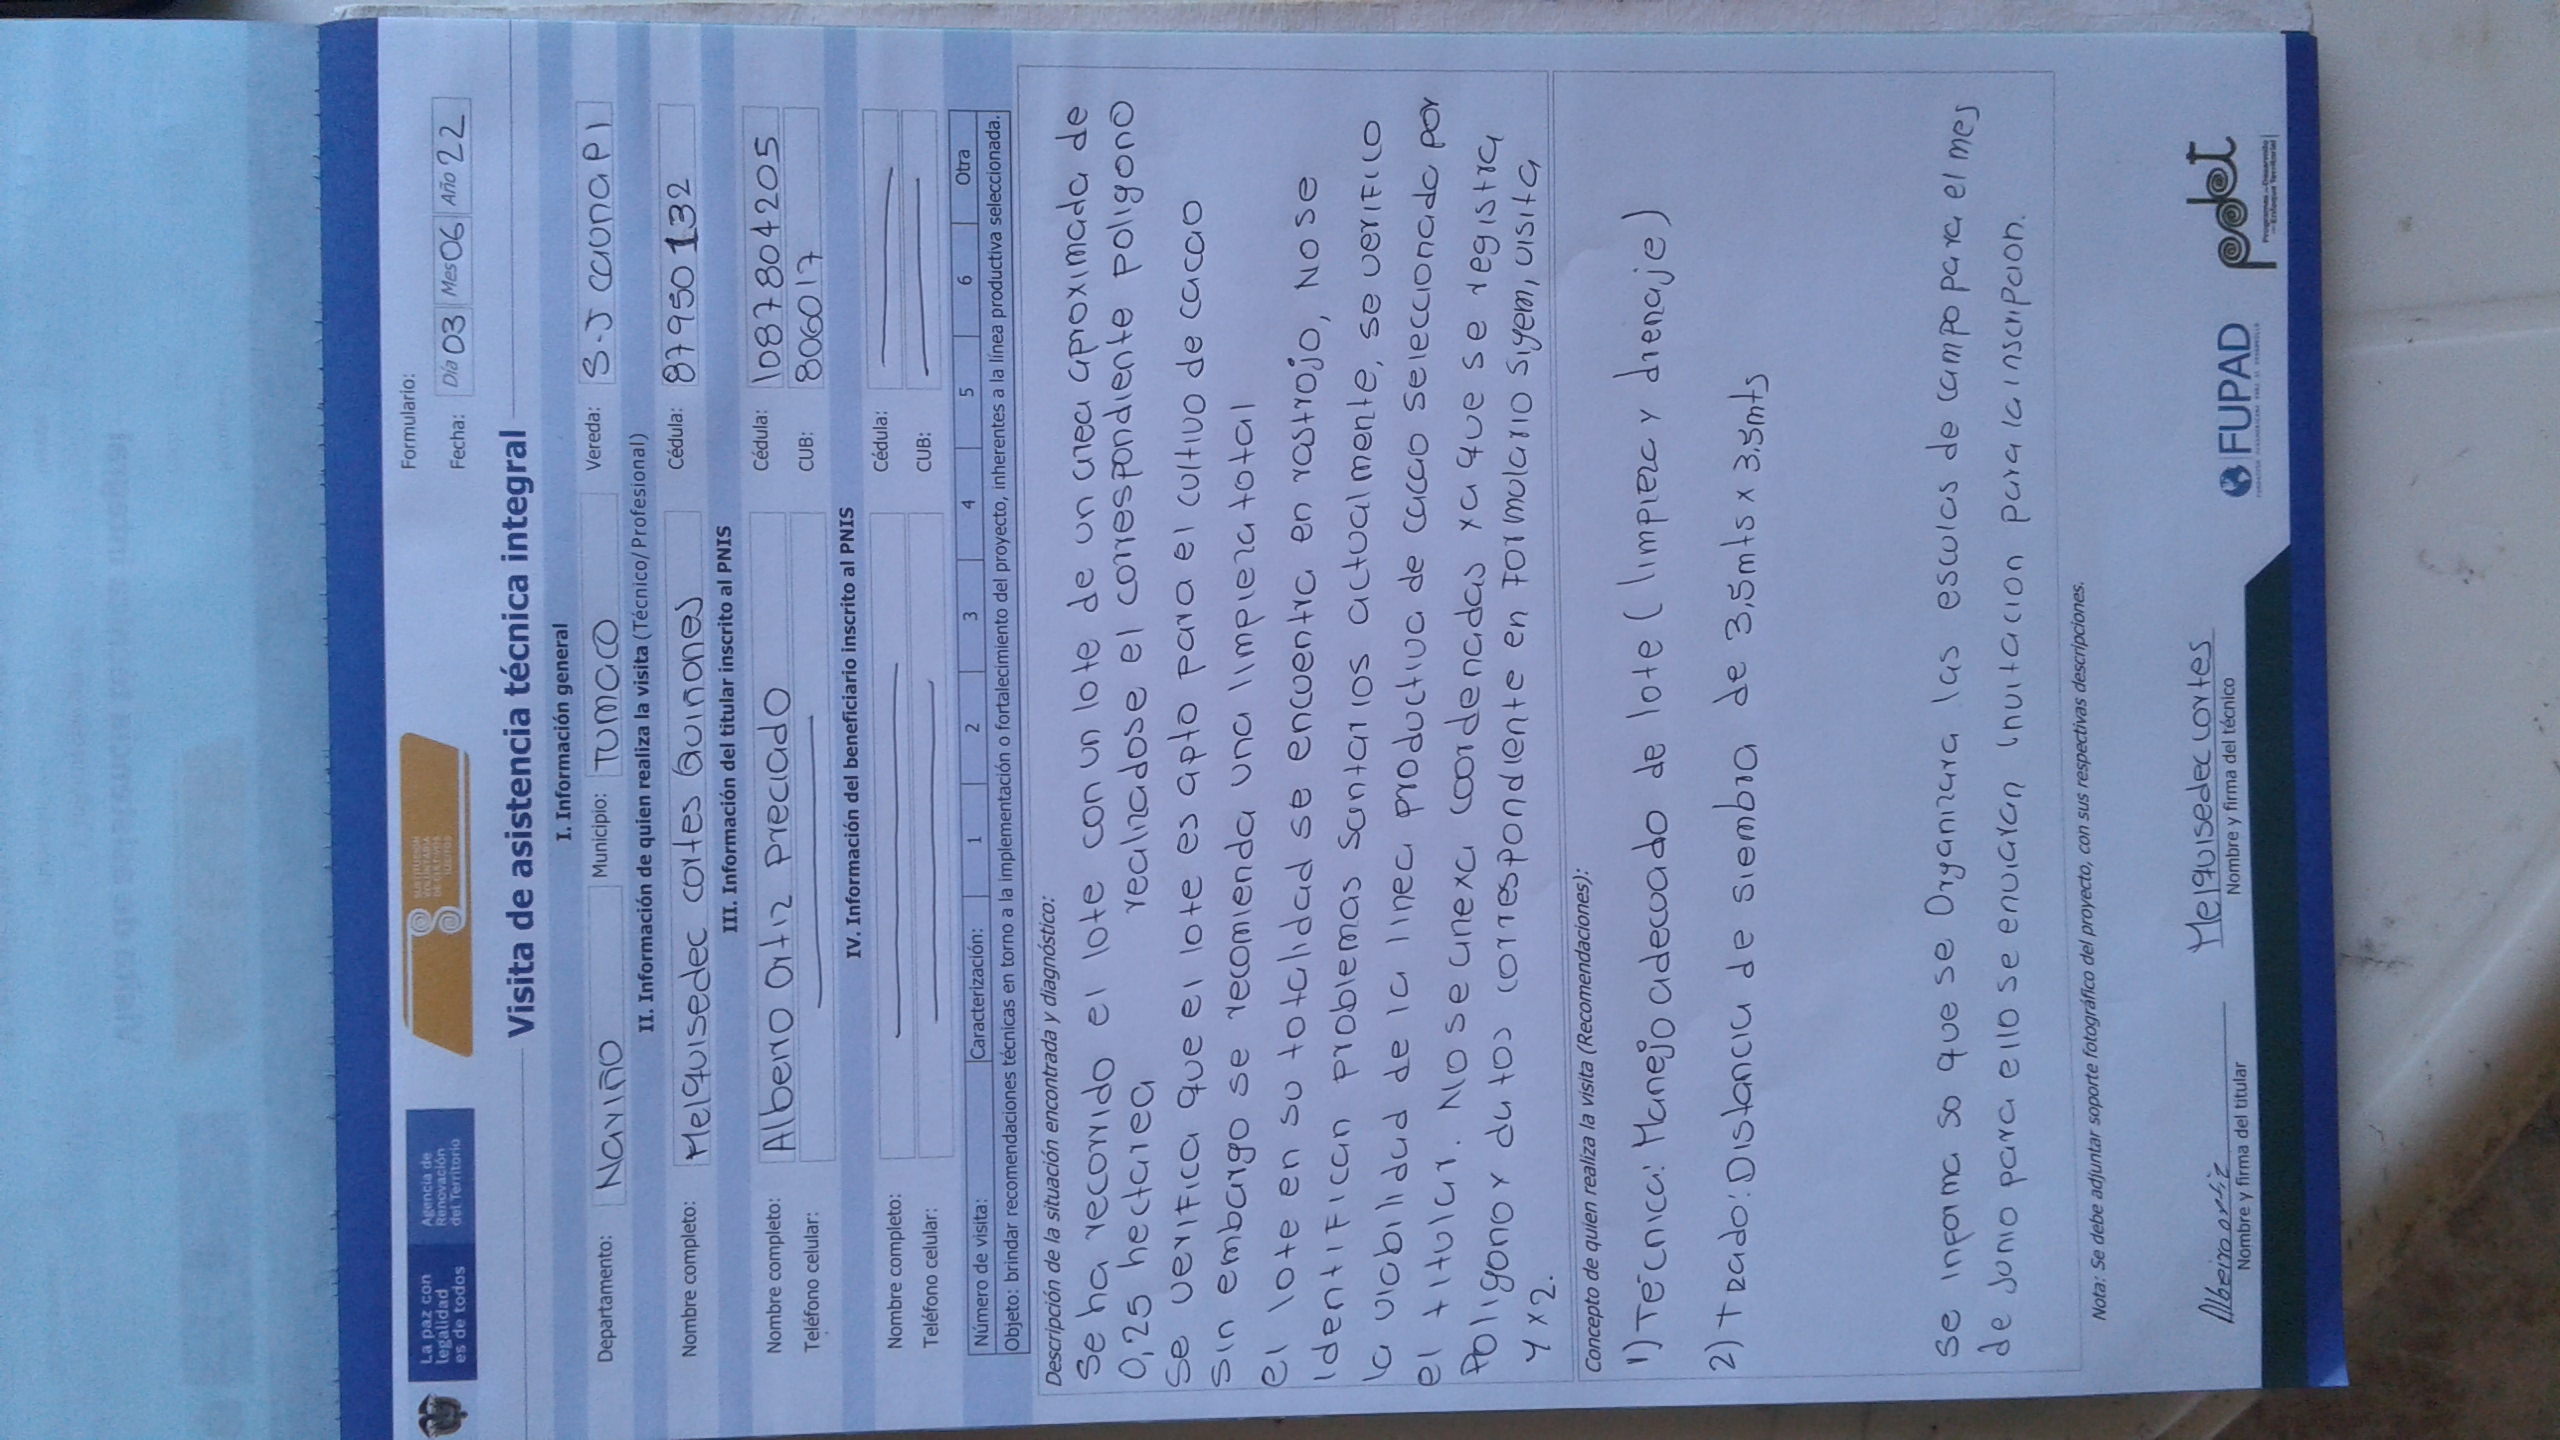 La paz con
legalidad
es de todos
Agencia de
Renovación
del Territorio
SUSTITUCIÓN
VOLUNTARIA
DE CULTIVOS
ILÍCITOS
Formulario:
Fecha: Día 03 Mes 06 Año 22
Visita de asistencia técnica integral
I. Información general
Departamento: Nariño Municipio: Tumaco Vereda: S.J caunapi
II. Información de quien realiza la visita (Técnico/Profesional)
Nombre completo: Melquisedec cortes Quiñones Cédula: 87950132
III. Información del titular inscrito al PNIS
Nombre completo: Albeiro Ortiz Preciado Cédula: 1087804205
Teléfono celular: CUB: 806017
IV. Información del beneficiario inscrito al PNIS
Nombre completo: Cédula:
Teléfono celular: CUB:
Número de visita: Caracterización: 1 2 3 4 5 6 Otra
Objeto: brindar recomendaciones técnicas en torno a la implementación o fortalecimiento del proyecto, inherentes a la línea productiva seleccionada.
Descripción de la situación encontrada y diagnóstico:
Se ha recorrido el lote con un lote de un area aproximada de
0,25 hectarea realizadose el correspondiente poligono
Se verifica que el lote es apto para el cultivo de cacao
Sin embargo se recomienda una limpieza total
el lote en su totalidad se encuentra en rastrojo, No se
identifican problemas sanitarios actualmente, se verifico
la viabilidad de la linea productiva de cacao seleccionada por
el titular. No se anexa coordenadas ya que se registra
Poligono y datos correspondiente en formulario sigem, visita
y x 2.
Concepto de quien realiza la visita (Recomendaciones):
1) Técnica: Manejo adecuado de lote ( limpieza y drenaje)
2) trazado: Distancia de siembra de 3,5mts x 3,5mts
Se informa so que se Organizara las esculas de campo para el mes
de Junio para ello se enviaran invitacion para la inscripcion.
Nota: Se debe adjuntar soporte fotográfico del proyecto, con sus respectivas descripciones.
Albeiro ortiz
Nombre y firma del titular
Melquisedec cortes
Nombre y firma del técnico
FUPAD
pdet
Programas de Desarrollo
con Enfoque Territorial